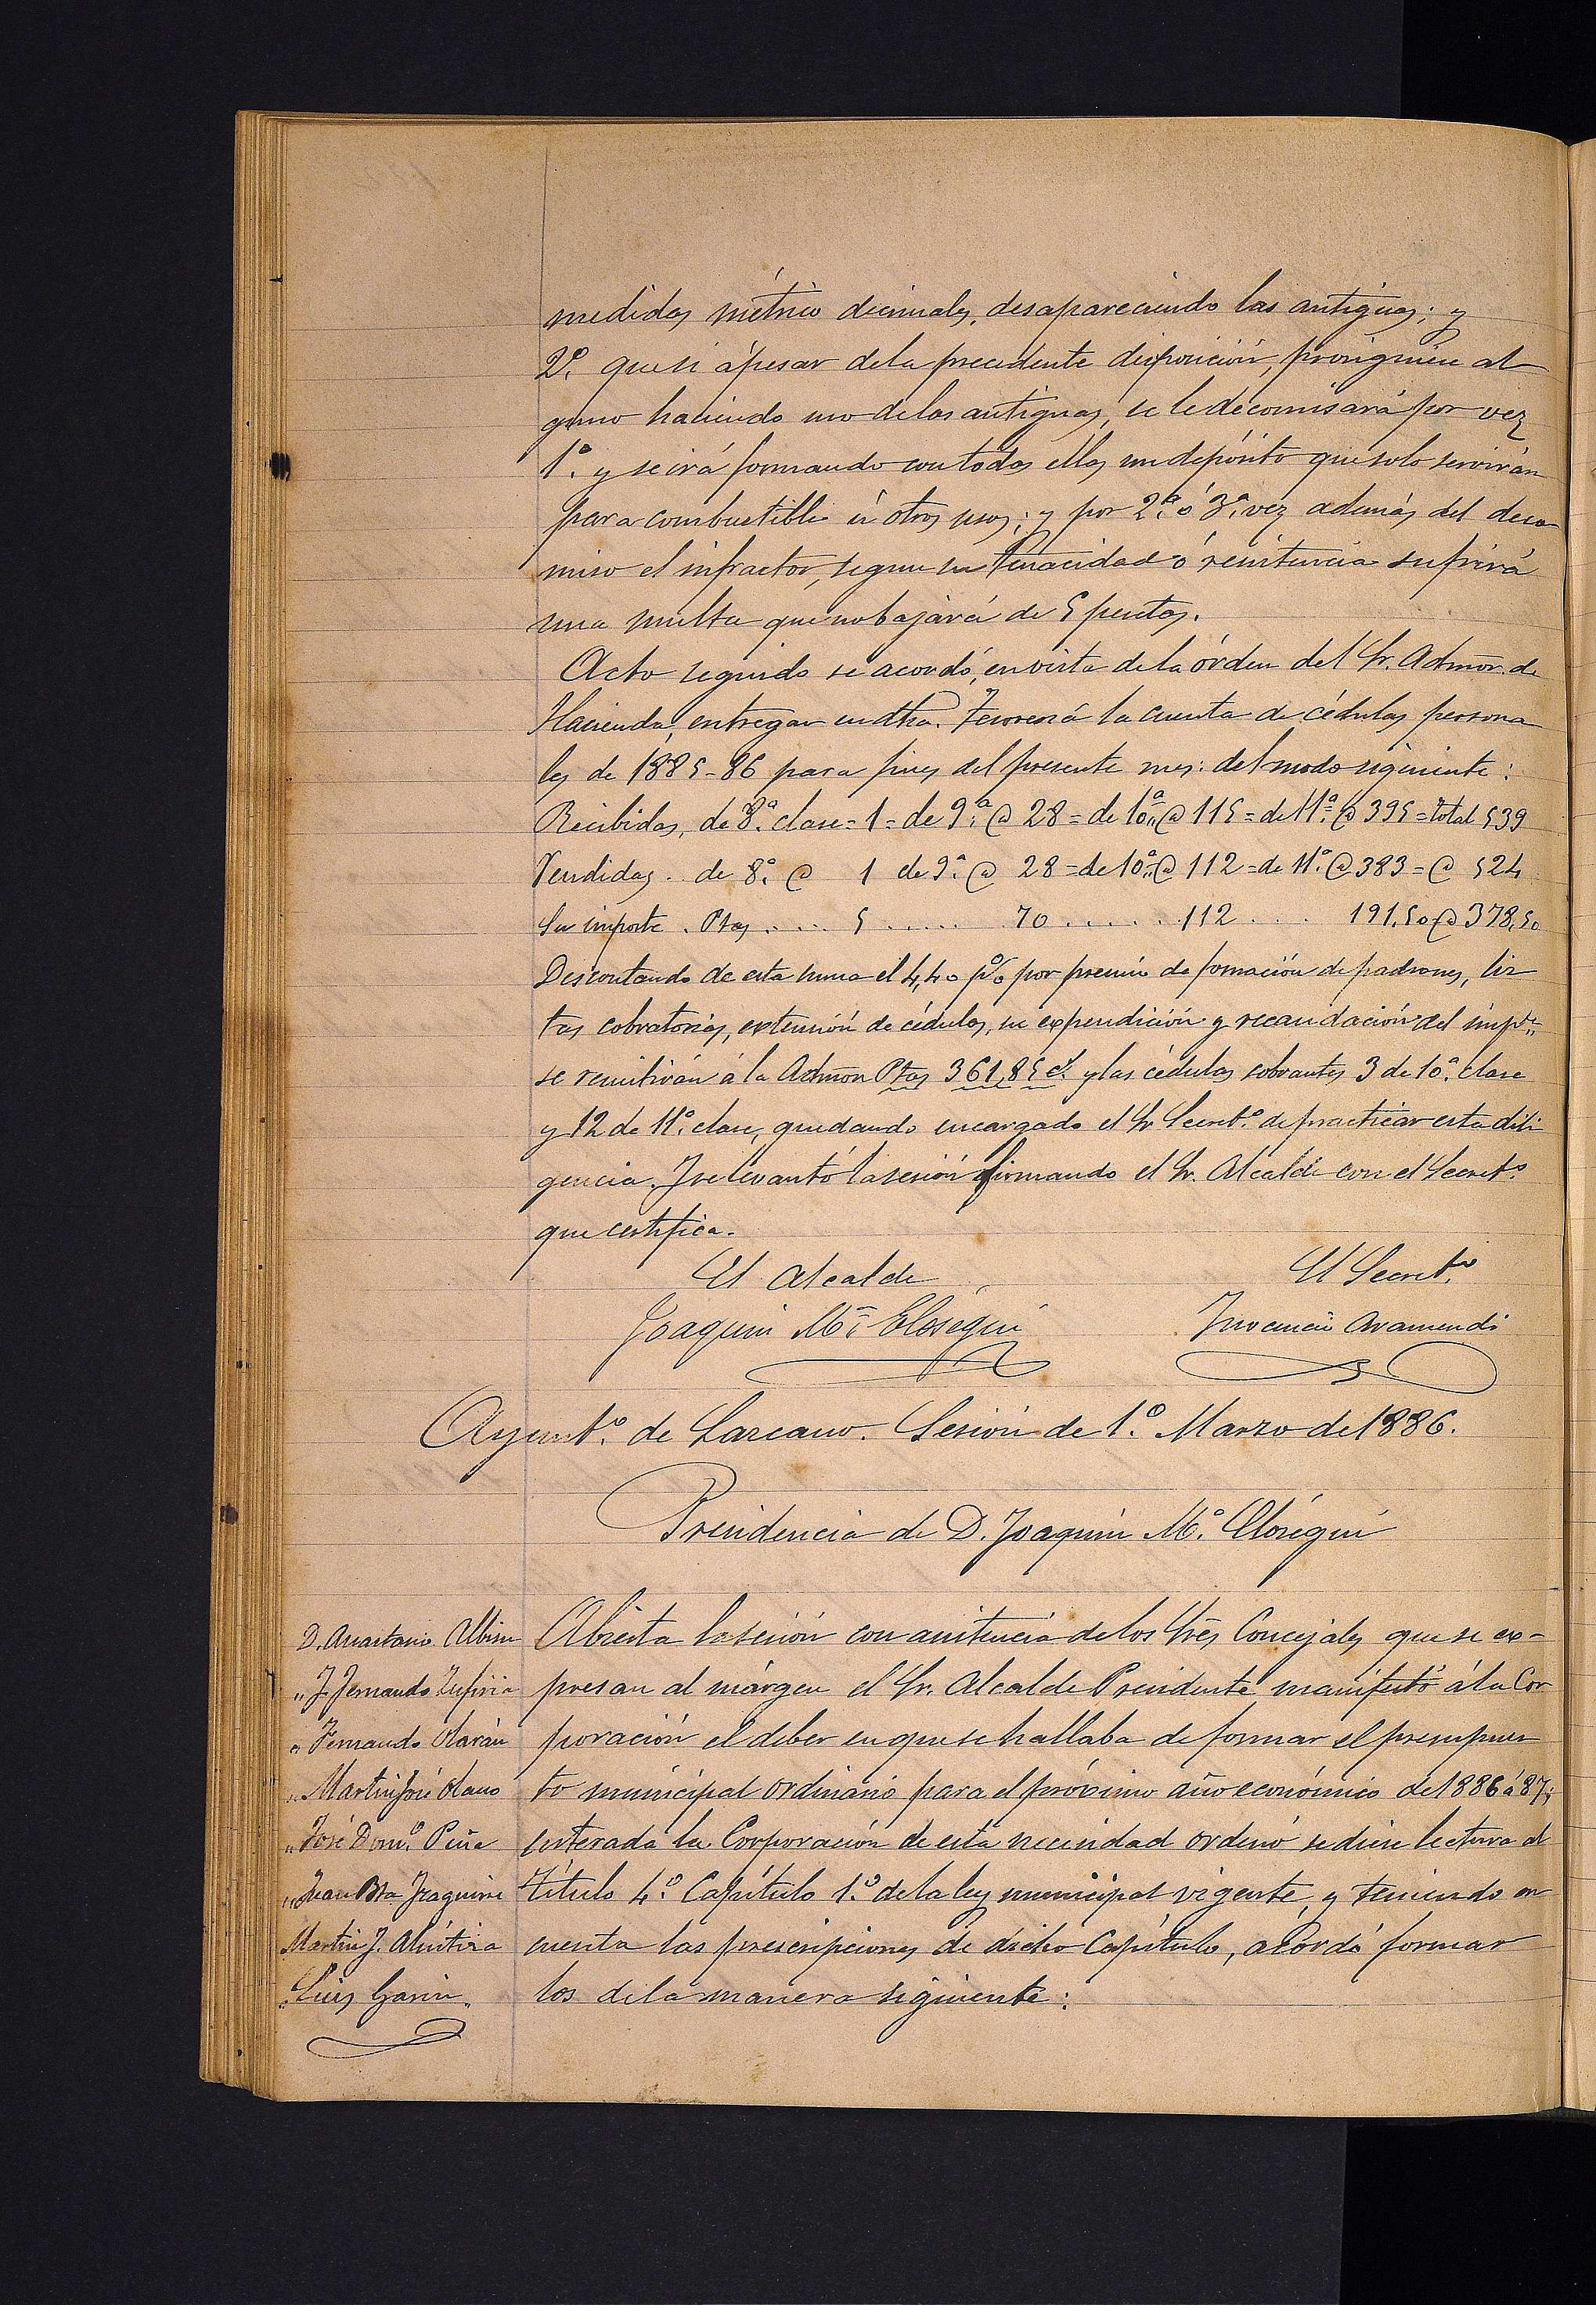 medidas métrico decimales, desapareciendo las antiguas; y
2º. que si ápesar dela precedente disposición, prosiguiese al
guno haciendo uso delas antiguas, se le decomisará por vez
1ª. y se irá formando con todas ellas un depósito que solo servirán
para combustible ú otros usos; y por 2ª. ó 3ª. vez además del deco
miso el infractor, segun su tenacidad ó resistencia sufrirá
una multa que no bajará de 5 pesetas.
Acto seguido se acordó, en vista de la órden del Sr. Admor. de
Hacienda, entregar en dha. Tesorería la cuenta de cédulas persona
les de 1885-86 para fines del presente mes: del modo siguiente:
Recibidas, de 8ª. clase = 1 = de 9ª. @ 28 = de 10ª. @ 115 = de 11ª. @ 395 = total 539
Vendidas. de 8ª. @ 1 de 9ª. @ 28 = de 10ª. @ 112 = de 11ª. @ 383 = @ 524
Su importe. Ptas .... 5 ...... 70 ...... 112 .... 191,50 @ 378,50
Descontando de esta suma el 4,40 p% por premio de formación de padrones, lis
tas cobratorias, extensión de cédulas, su expendición y recaudación del imp.to
se remitirán á la Admon Ptas 361,85 c. y las cédulas sobrantes 3 de 10ª. clase
y 12 de 11ª. clase, quedando encargado el Sr Secretº. de practicar esta dili
gencia. Y se levantó la sesión firmando el Sr. Alcalde con el Secretº.
que certifica.
El Alcalde El Secretº.
Joaquin Mª. Elósegui Inocencio Aramendi
Ayuntº. de Lazcano. Sesión de 1º. Marzo de 1886.
Presidencia de D. Joaquin Mª. Elósegui
D. Anastasio Albisu
" J. Fernando Zufiria
" Fernando Olarán
" Martin José Olano
" José Domº. Peña
" Juan Bta. Yzaguirre
Martin J. Aluštiza
" Luis Garin.
Abierta la sesión con asistencia de los Sres Concejales que se ex-
presan al márgen el Sr. Alcalde Presidente manifestó á la Cor
poración el deber en que se hallaba de formar el presupues
to municipal ordinario para el próximo año económico de 1886 á 87;
enterada la Corporación de esta necesidad ordenó se diese lectura al
título 4º. Capítulo 1º. de la ley municipal vigente, y teniendo en
cuenta las prescripciones de dicho Capítulo, acordó formar
los de la manera siguiente: